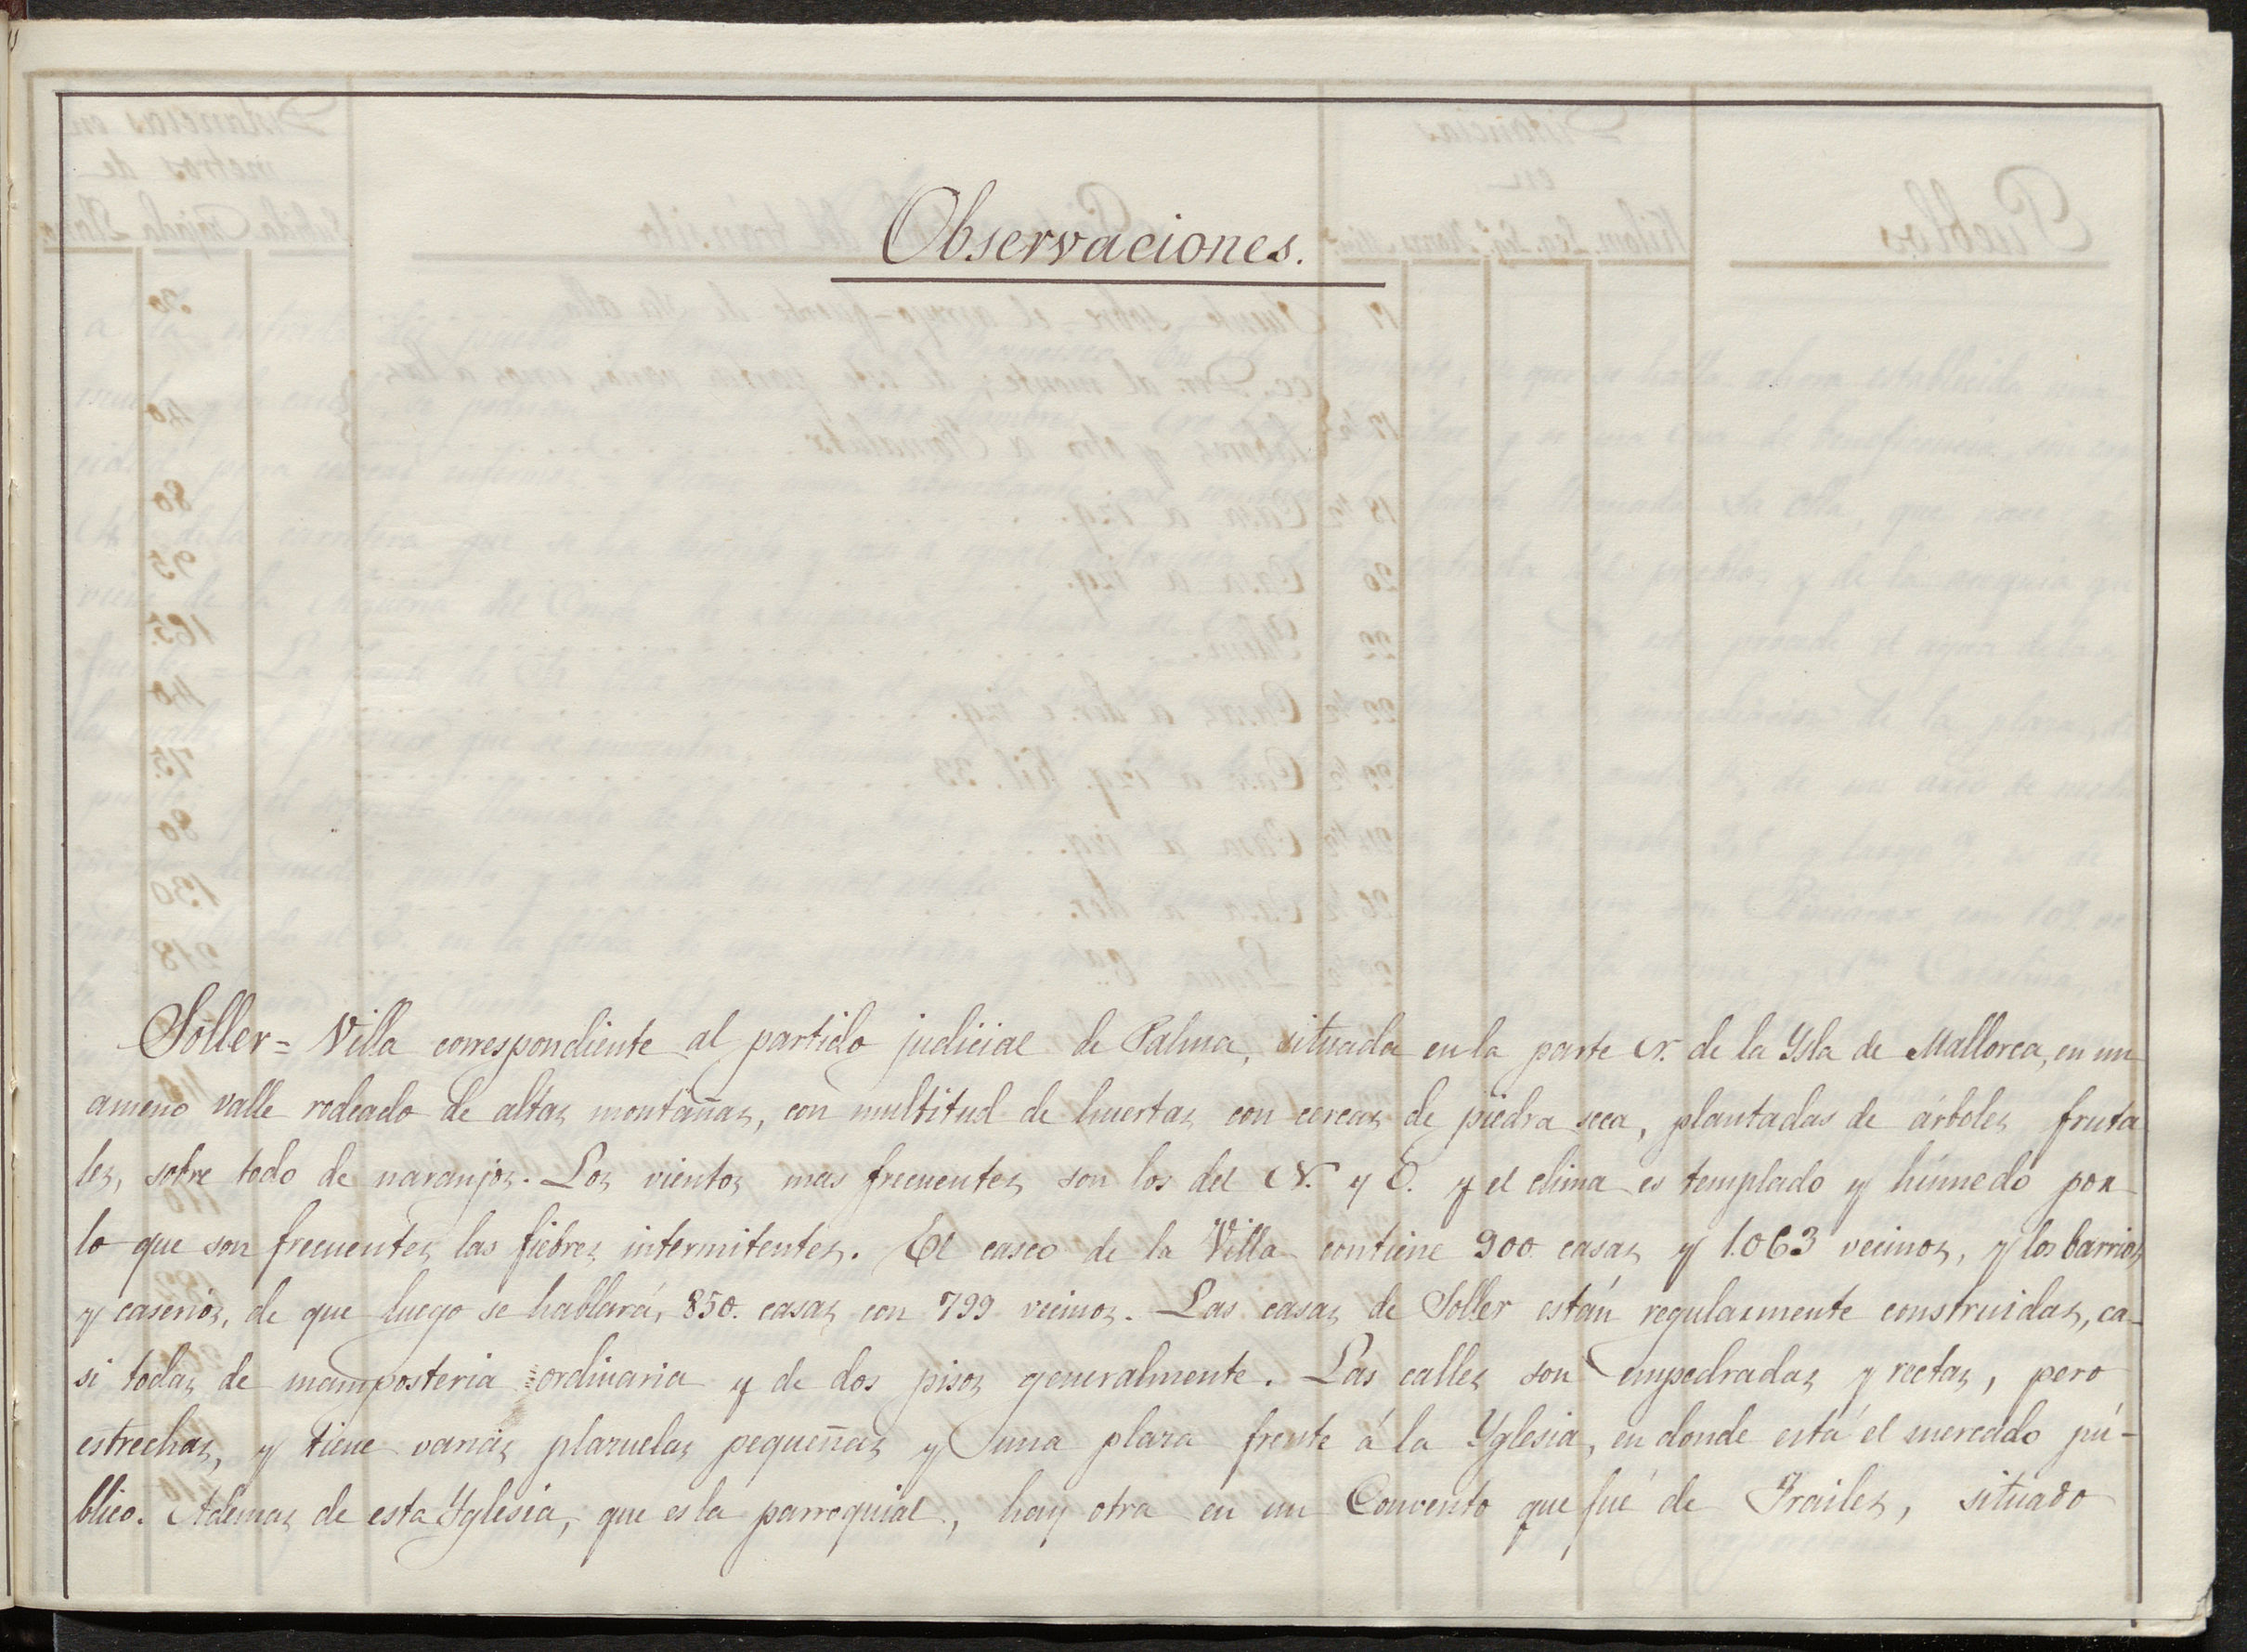 Observaciones.
Sóller = Villa correspondiente al partido judicial de Palma, situada en la parte N. de la Ysla de Mallorca, en un
ameno valle rodeado de altas montañas, con multitud de huertas con cercas de piedra seca, plantadas de árboles fruta
les, sobre todo de naranjos. Los vientos mas frecuentes son los del N. y O. y el clima es templado y húmedo por
lo que son frecuentes las fiebres intermitentes. El casco de la Villa contiene 900 casas y 1.063 vecinos, y los barrios
y caserios, de que luego se hablará, 850. casas con 799 vecinos. Las casas de Soller están regularmente construidas, ca-
si todas de mamposteria ordinaria y de dos pisos generalmente. Las calles son empedradas y rectas, pero
estrechas, y tiene varias plazuelas pequeñas y una plaza frente á la Yglesia, en donde está el mercado pú-
blico. Ademas de esta Yglesia, que es la parroquial, hay otra en un Convento que fué de Frailes, situado